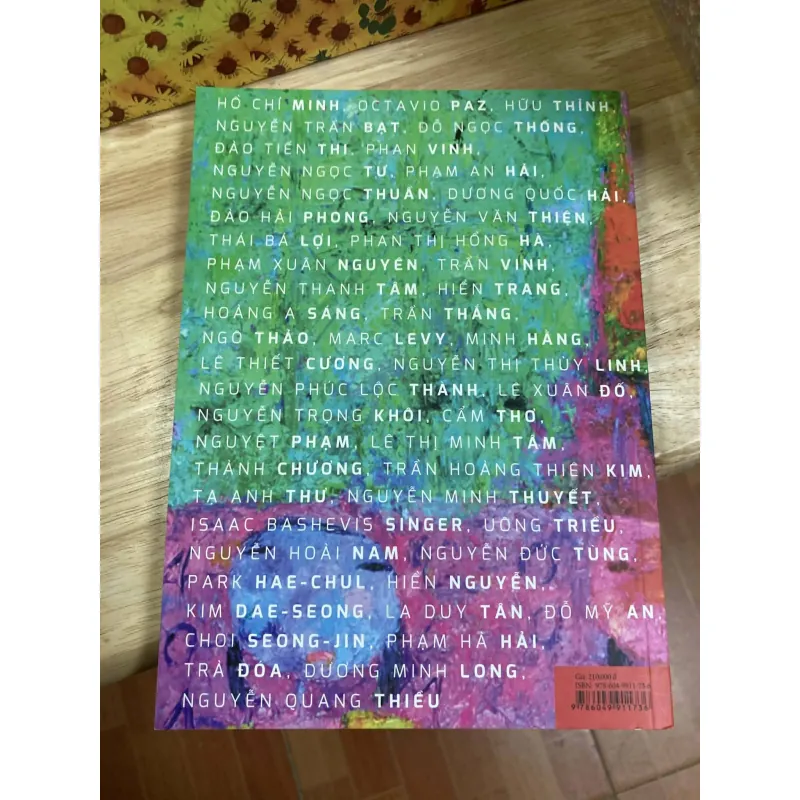 HỒ CHÍ MINH, OCTAVIO PAZ, HỮU THỈNH,
NGUYỄN TRẦN BẠT, ĐỖ NGỌC THỐNG,
ĐÀO TIẾN THI, PHAN VINH,
NGUYỄN NGỌC TƯ, PHẠM AN HẢI,
NGUYỄN NGỌC THUẦN, DƯƠNG QUỐC HẢI,
ĐÀO HẢI PHONG, NGUYỄN VĂN THIỆN,
THÁI BÁ LỢI, PHAN THỊ HỒNG HÀ,
PHẠM XUÂN NGUYÊN, TRẦN VINH,
NGUYỄN THANH TÂM, HIỀN TRANG,
HOÀNG A SÁNG, TRẦN THẮNG,
NGÔ THẢO, MARC LEVY, MINH HẰNG,
LÊ THIẾT CƯƠNG, NGUYỄN THỊ THÙY LINH,
NGUYỄN PHÚC LỘC THÀNH, LÊ XUÂN ĐỐ,
NGUYỄN TRỌNG KHÔI, CẨM THƠ,
NGUYỆT PHẠM, LÊ THỊ MINH TÂM,
THÀNH CHƯƠNG, TRẦN HOÀNG THIÊN KIM,
TẠ ANH THƯ, NGUYỄN MINH THUYẾT,
ISAAC BASHEVIS SINGER, UÔNG TRIỀU,
NGUYỄN HOÀI NAM, NGUYỄN ĐỨC TÙNG,
PARK HAE-CHUL, HIỀN NGUYỄN,
KIM DAE-SEONG, LA DUY TÂN, ĐỖ MỸ AN,
CHOI SEONG-JIN, PHẠM HÀ HẢI,
TRÀ ĐÓA, DƯƠNG MINH LONG,
NGUYỄN QUANG THIỀU
ISBN: 978-604-9911-73-6
9 786049 911736